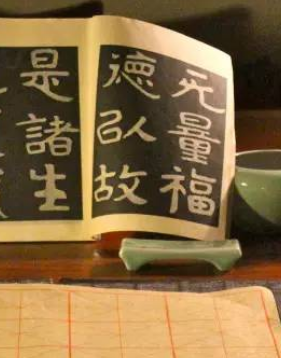 无量福
德以故
是諸生